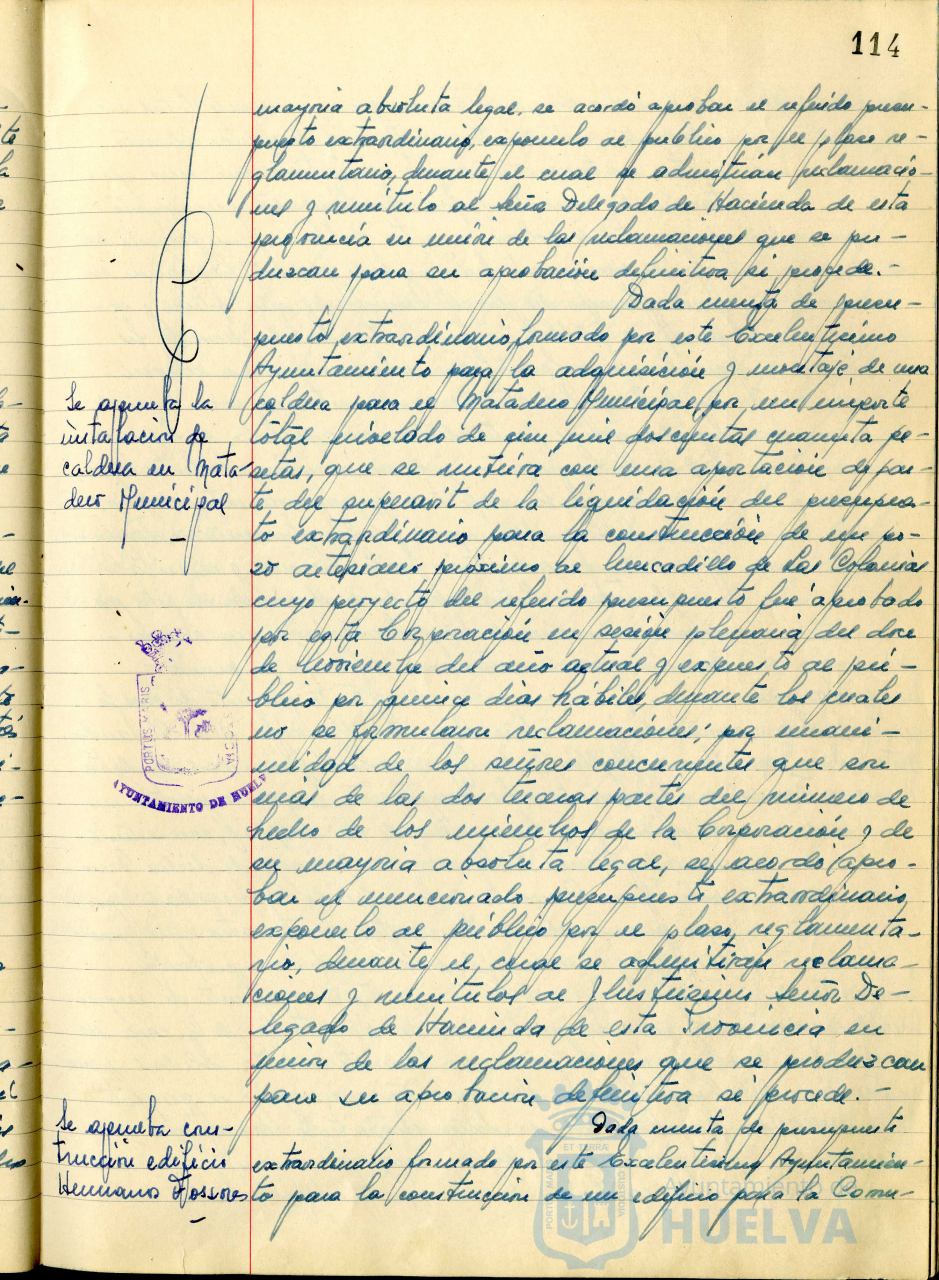 114
mayoria absoluta legal, se acordó aprobar el referido presu-
puesto extraordinario, exponerlo al público por el plazo re-
glamentario, durante el cual se admitirán reclamacio-
nes y remitirlo al Señor Delegado de Hacienda de esta
provincia en unión de las reclamaciones que se pro-
duzcan para su aprobación definitiva si procede.-
Dada cuenta de presu-
puesto extraordinario formado por este Excelentísimo
Ayuntamiento para la adquisición y montaje de una
caldera para el Matadero Municipal, por un importe
total nivelado de cien mil doscientas cuarenta pe-
setas, que se nutrirá con una aportación de par-
te del superavit de la liquidación del presupues-
to extraordinario para la construcción de un po-
zo artesiano próximo al mercadillo de Las Colonias
cuyo proyecto del referido presupuesto fué aprobado
por esta Corporación en sesión plenaria del doce
de Noviembre del año actual y expuesto al pú-
blico por quince dias hábiles, durante los cuales
no se formularon reclamaciones; por unani-
midad de los señores concurrentes que son
más de las dos terceras partes del número de
hecho de los miembros de la Corporación y de
su mayoria absoluta legal, se acordó apro-
bar el mencionado presupuesto extraordinario,
exponerlo al público por el plazo reglamenta-
rio, durante el cual se admitirán reclama-
ciones y remitirlos al Ilustrísimo Señor De-
legado de Hacienda de esta Provincia en
unión de las reclamaciones que se produzcan
para su aprobación definitiva si procede.-
Dada cuenta de presupuesto
extraordinario formado por este Excelentísimo Ayuntamien-
to para la construcción de un edificio para la Comu-
Se aprueba la
instalación de
caldera en Mata-
dero Municipal
-
PORTUS MARIS
AYUNTAMIENTO DE HUELVA
Se aprueba cons-
trucción edificio
Hermanos Fossores
-
ET TERRAE
PORTUS MARIS
CUSTODIA
Ayuntamiento de
HUELVA